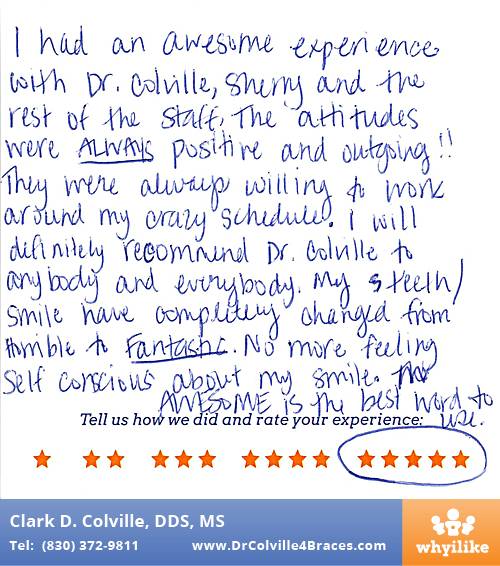 I had an awesome experience
with Dr. Colville, Sherry and the
rest of the staff. The attitudes
were ALWAYS positive and outgoing!!
They were always willing to work
around my crazy schedule. I will
definitely recommend Dr. Colville to
anybody and everybody. My teeth/
smile have completely changed from
horrible to Fantastic. No more feeling
self conscious about my smile.
AWESOME is the best word to
use.
Tell us how we did and rate your experience:
Clark D. Colville, DDS, MS
Tel: (830) 372-9811 www.DrColville4Braces.com
whyilike